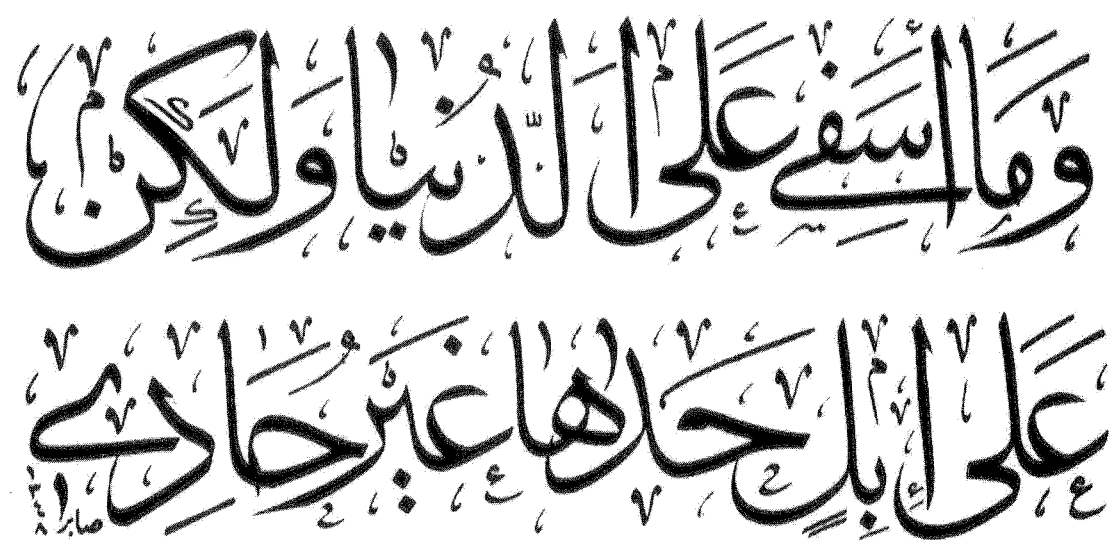 وَمَا أَسَفِي عَلَى الدُّنْيَا وَلَكِنْ
عَلَى إِبِلٍ حَدَاهَا غَيْرُ حَادِي
صابر
١٣٤٨